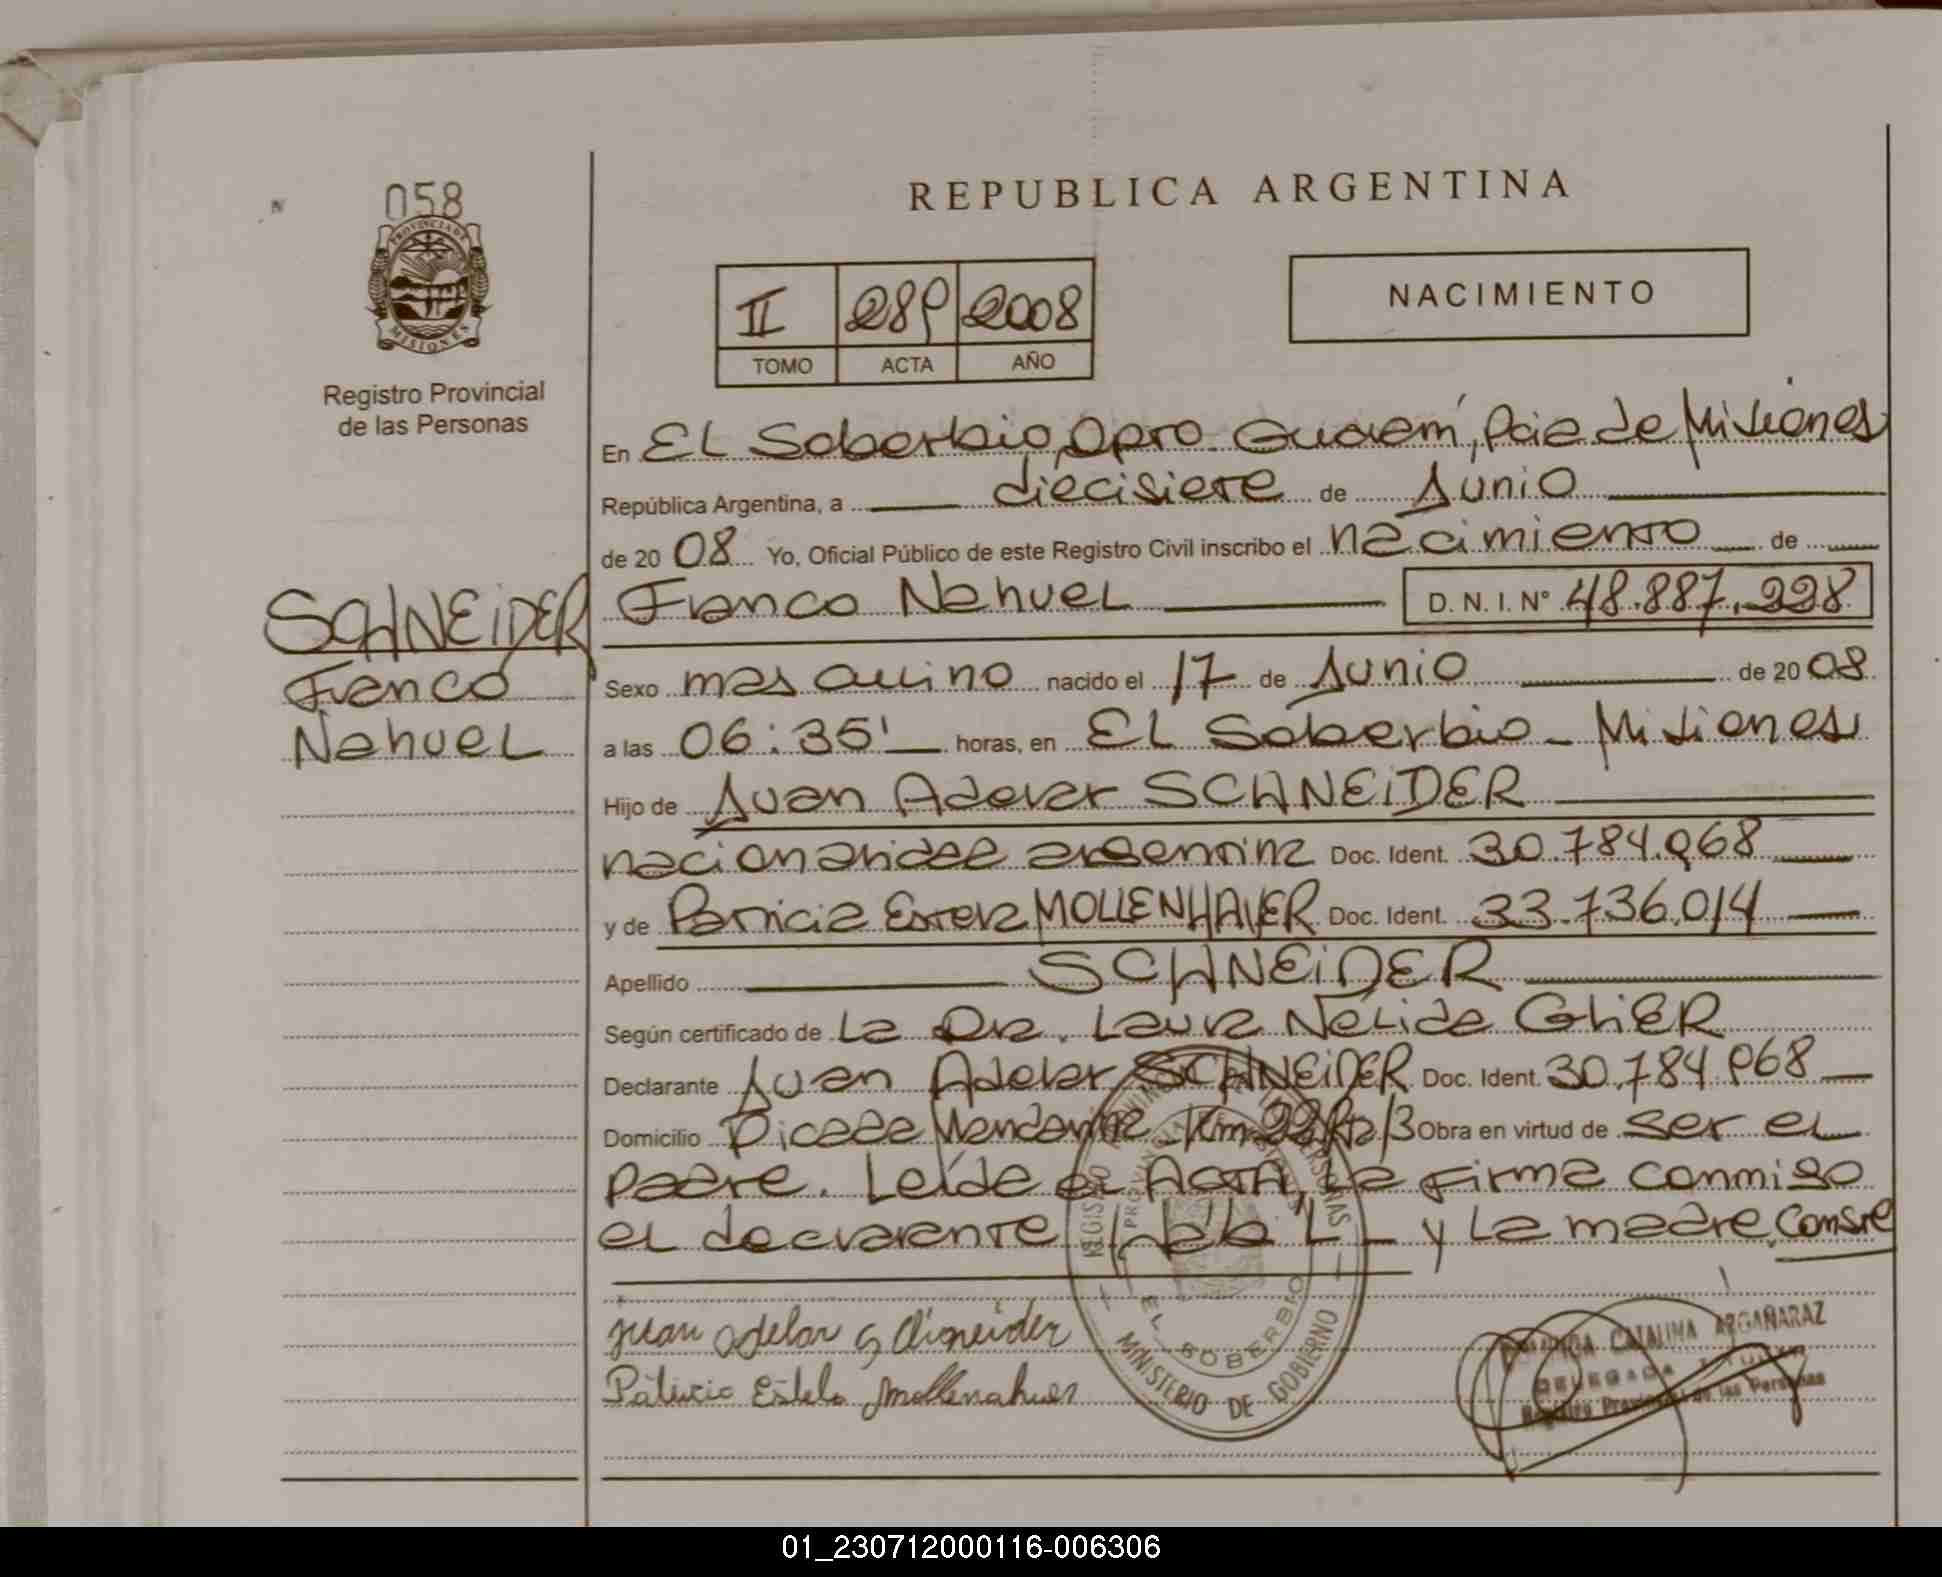 058
PROVINCIA DE
MISIONES
Registro Provincial
de las Personas
SCHNEiDER
Franco
Nahuel
REPUBLICA ARGENTINA
II 289 2008
TOMO ACTA AÑO
NACIMIENTO
En EL Soberbio, Dpto. Guaraní, Pcia de Misiones
República Argentina, a diecisiete de Junio
de 2008 Yo, Oficial Público de este Registro Civil inscribo el nacimiento de
Franco Nahuel D. N. I. Nº 48.887.228
Sexo masculino nacido el 17 de Junio de 2008
a las 06:35' horas, en EL Soberbio - Misiones
Hijo de Juan Adelar SCHNEiDER
nacionalidad argentina Doc. Ident. 30.784.968
y de Patricia Estela MOLLENHAUER Doc. Ident. 33.736.014
Apellido SCHNEiDER
Según certificado de La Dra. Laura Nélida GhiER
Declarante Juan Adelar SCHNEiDER Doc. Ident. 30.784.968
Domicilio Picada Mandarina Km 22 Obra en virtud de ser el
padre. Leída el ACTA, la firma conmigo
el declarante y la madre, Conste
Juan adelar Schneider
Patricia Estela Mollenahuer
EL SOBERBIO
MINISTERIO DE GOBIERNO
CATALINA ARGAÑARAZ
DELEGADA TITULAR
Registro Provincial de las Personas
01_230712000116-006306